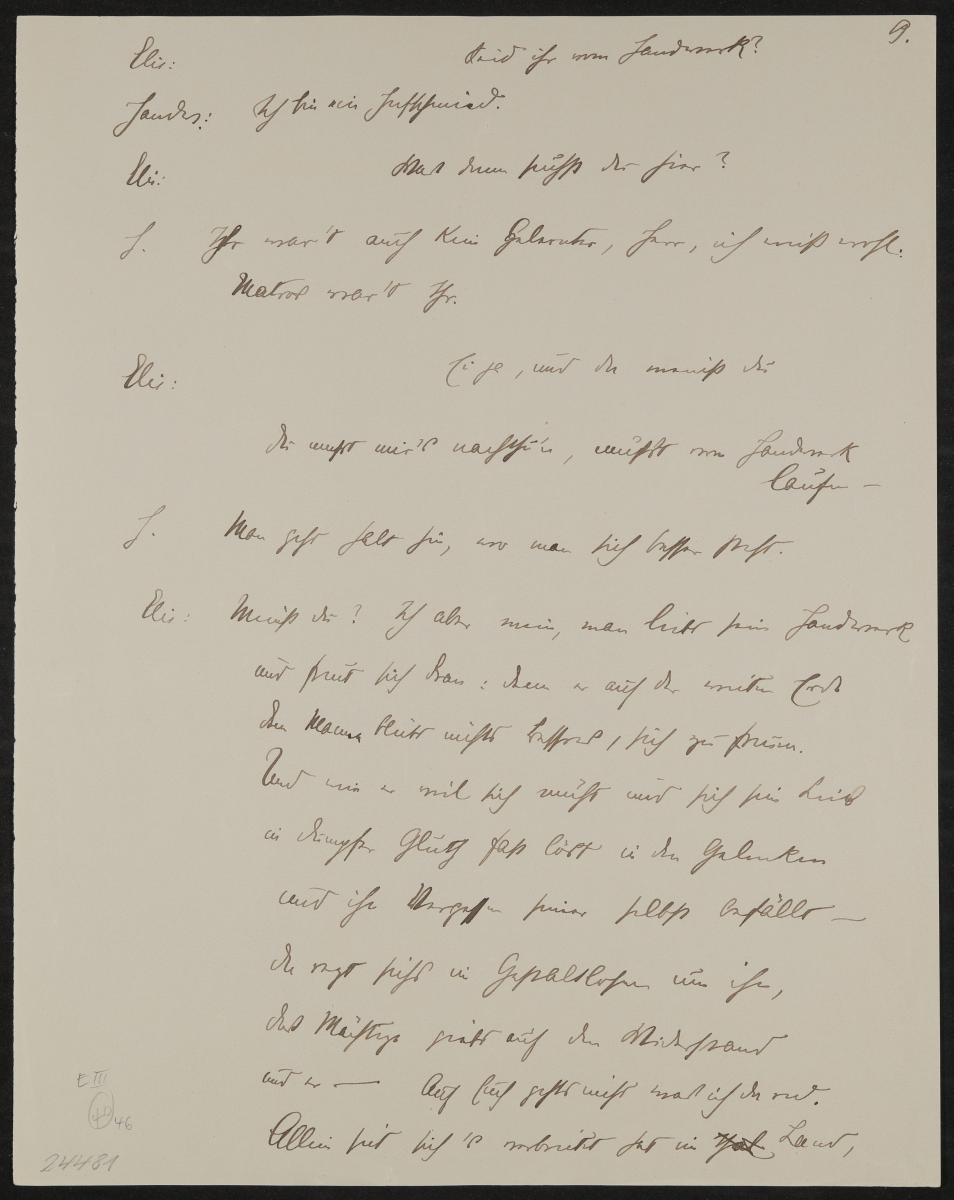 9.
Elis: Seid ihr vom Handwerk?
Handw.: Ich bin ein Hufschmied.
Elis: Was denn suchst du hier?
H. Ihr war't auch kein Gelernter, Herr, ich weiß wohl.
Matros war't Ihr.
Elis: Ei ja, und da meinst du
du must mir's nachthu'n, müßst vom Handwerk
laufen —
H. Man geht halt hin, wo man sich besser steht.
Elis: Meinst du? Ich aber mein, man liebt sein Handwerk
und freut sich dran: denn er auf der weiten Erde
dem Mann bleibt nichts besseres, sich zu freuen.
Und wie er viel sich müht und sich sein Leib
in dumpfer Gluth fast löst in den Gelenken
und ihn Vergessen seiner selbst befällt —
da regt sichs im Gestaltlosen um ihn,
das Mächtige giebt auf den Widerstand
und er — Auf Euch gehts nicht was ich da red.
Allein seit sich's verbreitet hat im Land,
E III
46
24481